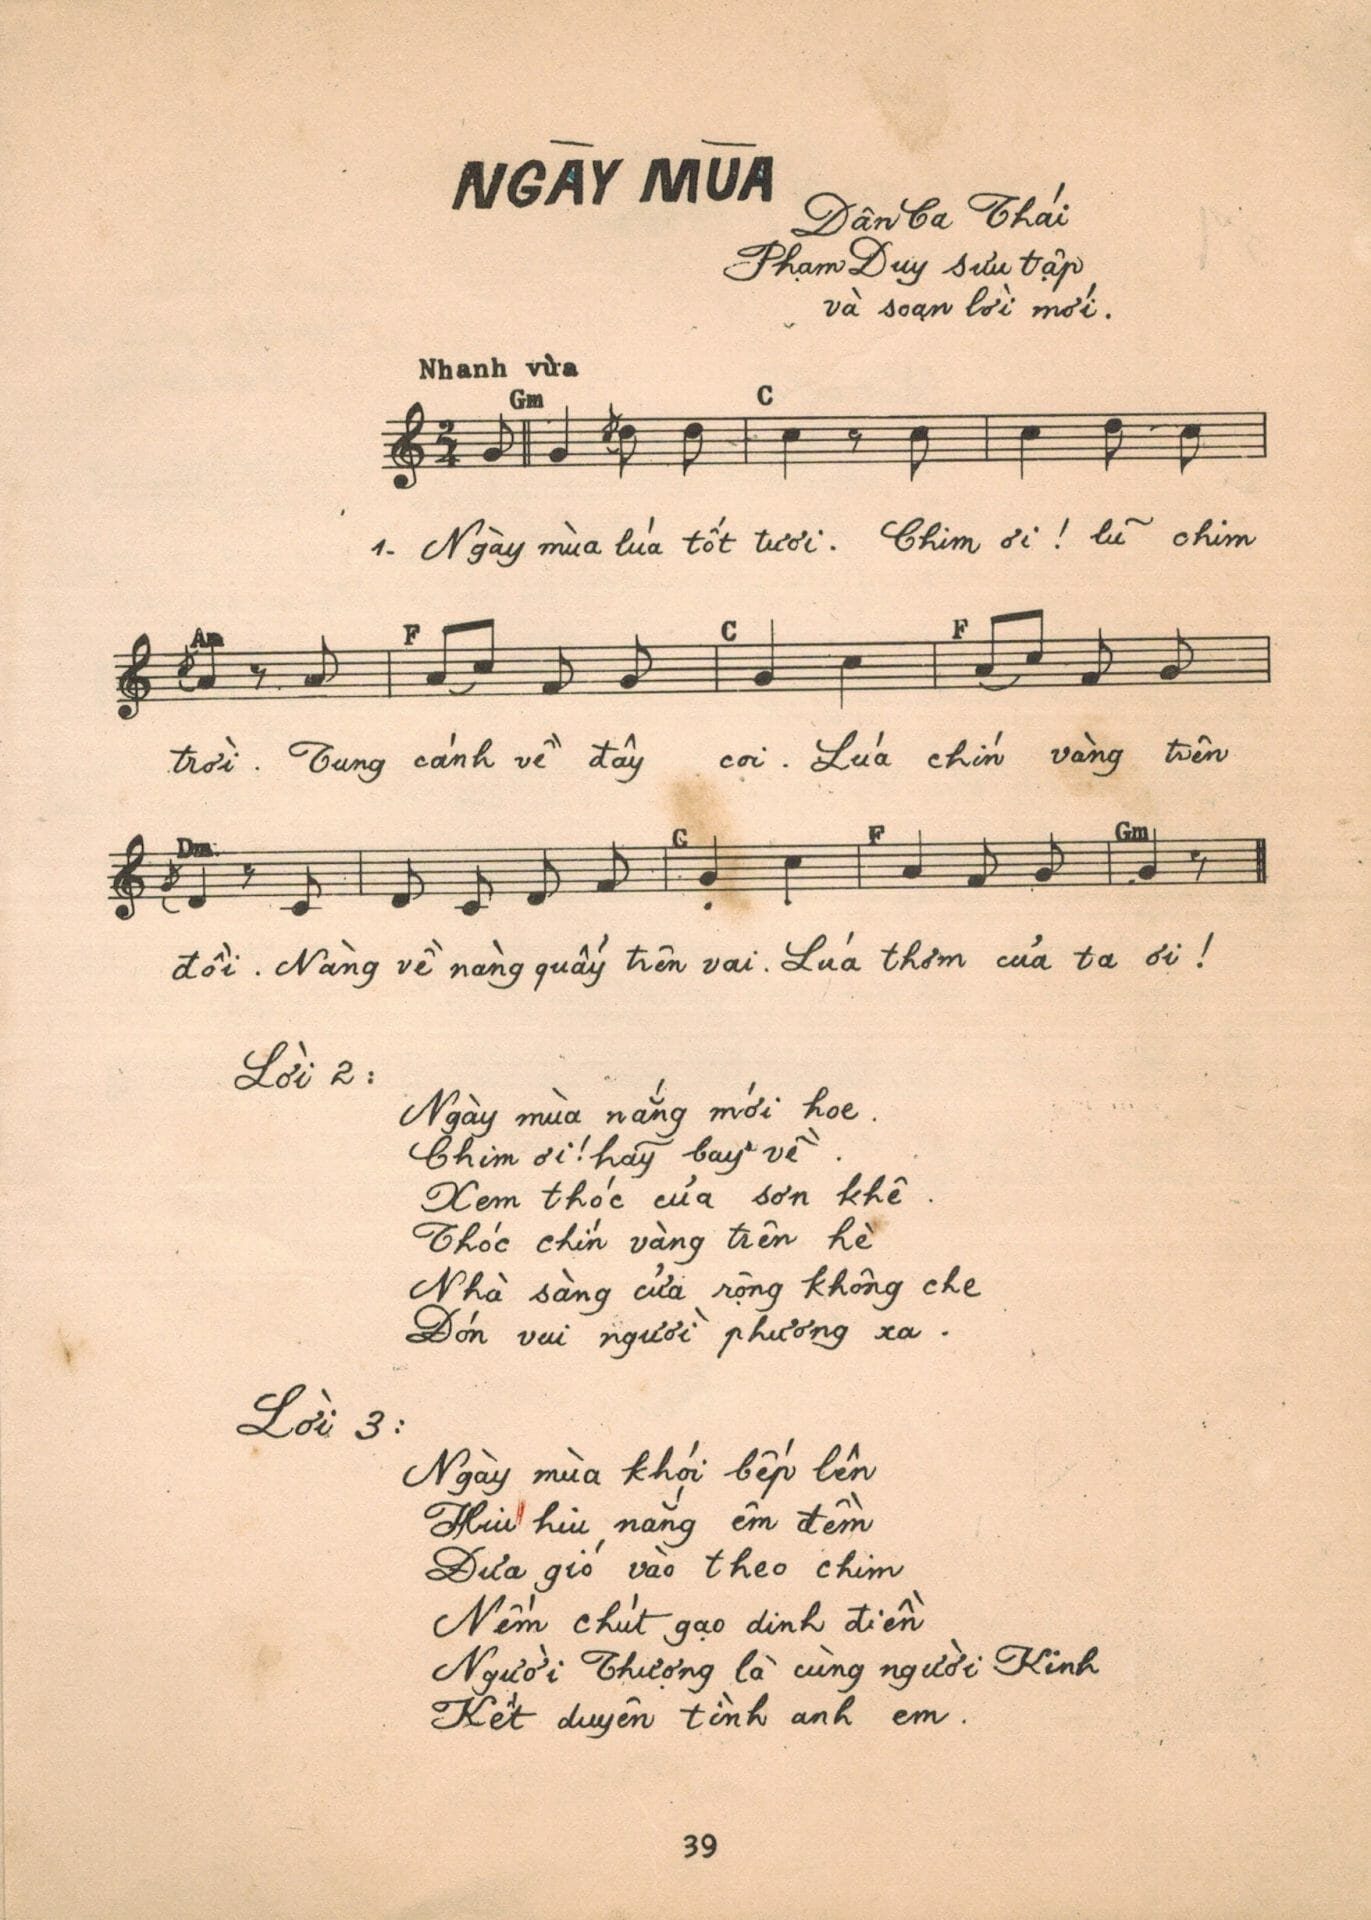 NGÀY MÙA
Dân Ca Thái
Phạm Duy sưu tập
và soạn lời mới.
Nhanh vừa
Gm C
2
4
1- Ngày mùa lúa tốt tươi. Chim ơi! lũ chim
Am F C F
trời. Tung cánh về đây coi. Lúa chín vàng trên
Dm C F Gm
đồi. Nàng về nàng quẩy trên vai. Lúa thơm của ta ơi!
Lời 2:
Ngày mùa nắng mới hoe.
Chim ơi! hãy bay về.
Xem thóc của sơn khê.
Thóc chín vàng trên hè
Nhà sàng cửa rộng không che
Đón vui người phương xa.
Lời 3:
Ngày mùa khói bếp lên
Hiu hiu nắng êm đềm
Đưa gió vào theo chim
Nếm chút gạo dinh điền
Người Thượng là cùng người Kinh
Kết duyên tình anh em.
39